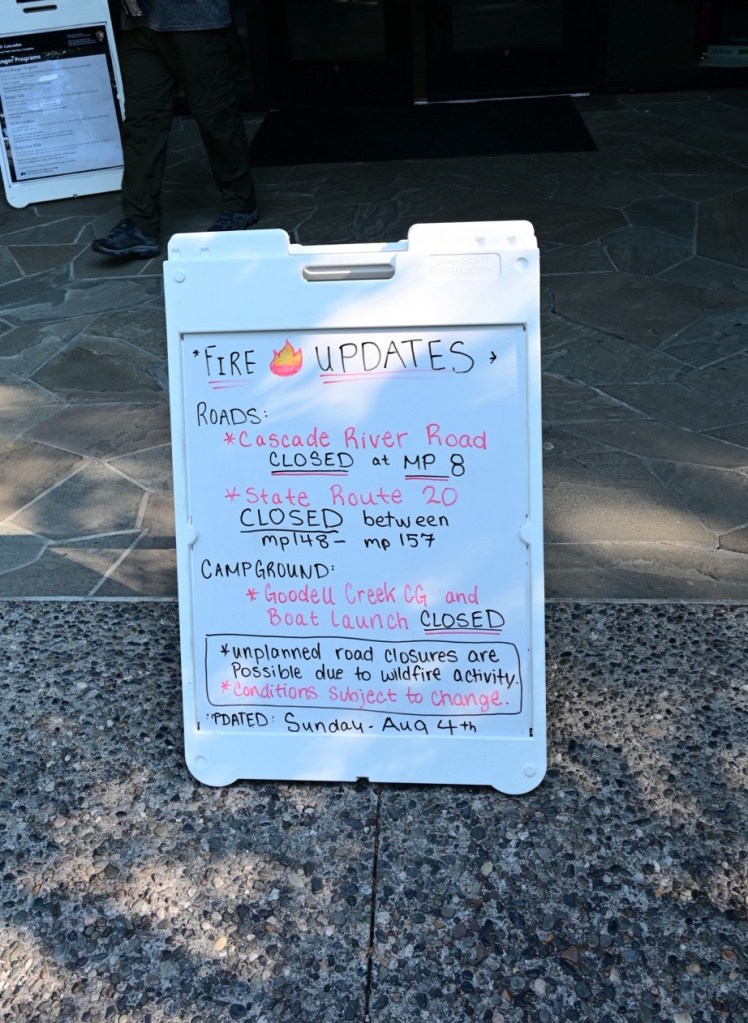 Cascades
Ranger Programs
*FIRE UPDATES
ROADS:
*Cascade River Road
CLOSED at MP 8
*State Route 20
CLOSED between
mp148- mp157
CAMPGROUND:
*Goodell Creek CG and
Boat Launch CLOSED
*unplanned road closures are
Possible due to wildfire activity.
*Conditions subject to change.
UPDATED: Sunday- Aug 4th